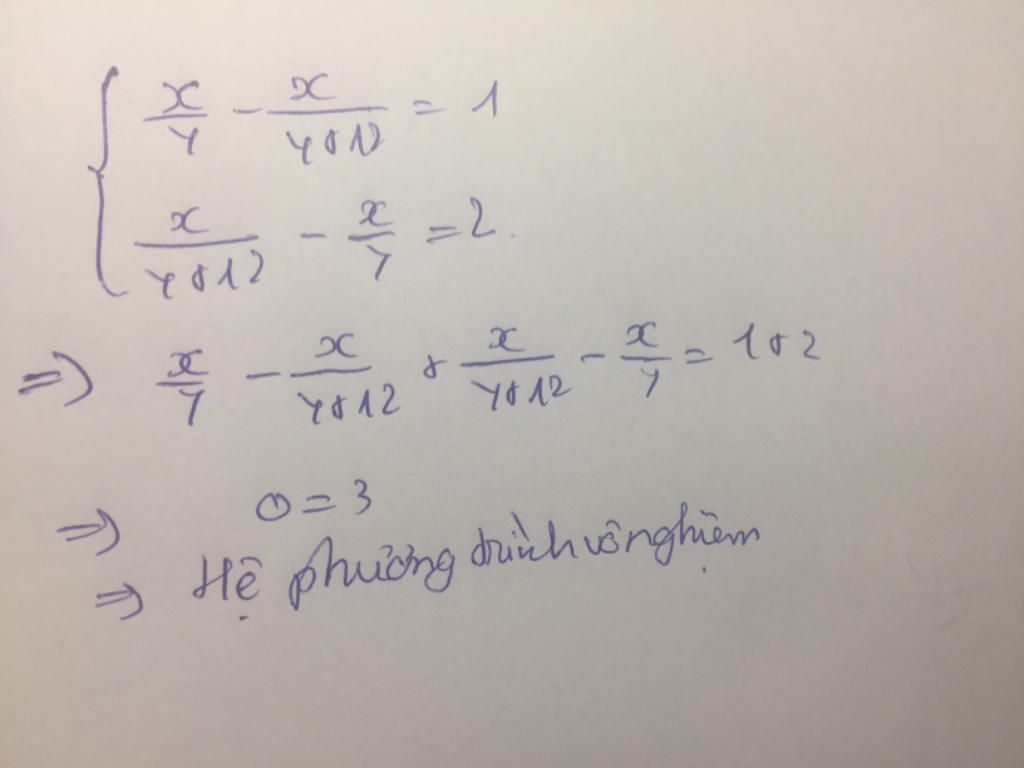 x/y - x/(y+12) = 1
x/(y+12) - x/y = 2.
=> x/y - x/(y+12) + x/(y+12) - x/y = 1+2
=> 0 = 3
=> Hệ phương trình vô nghiệm